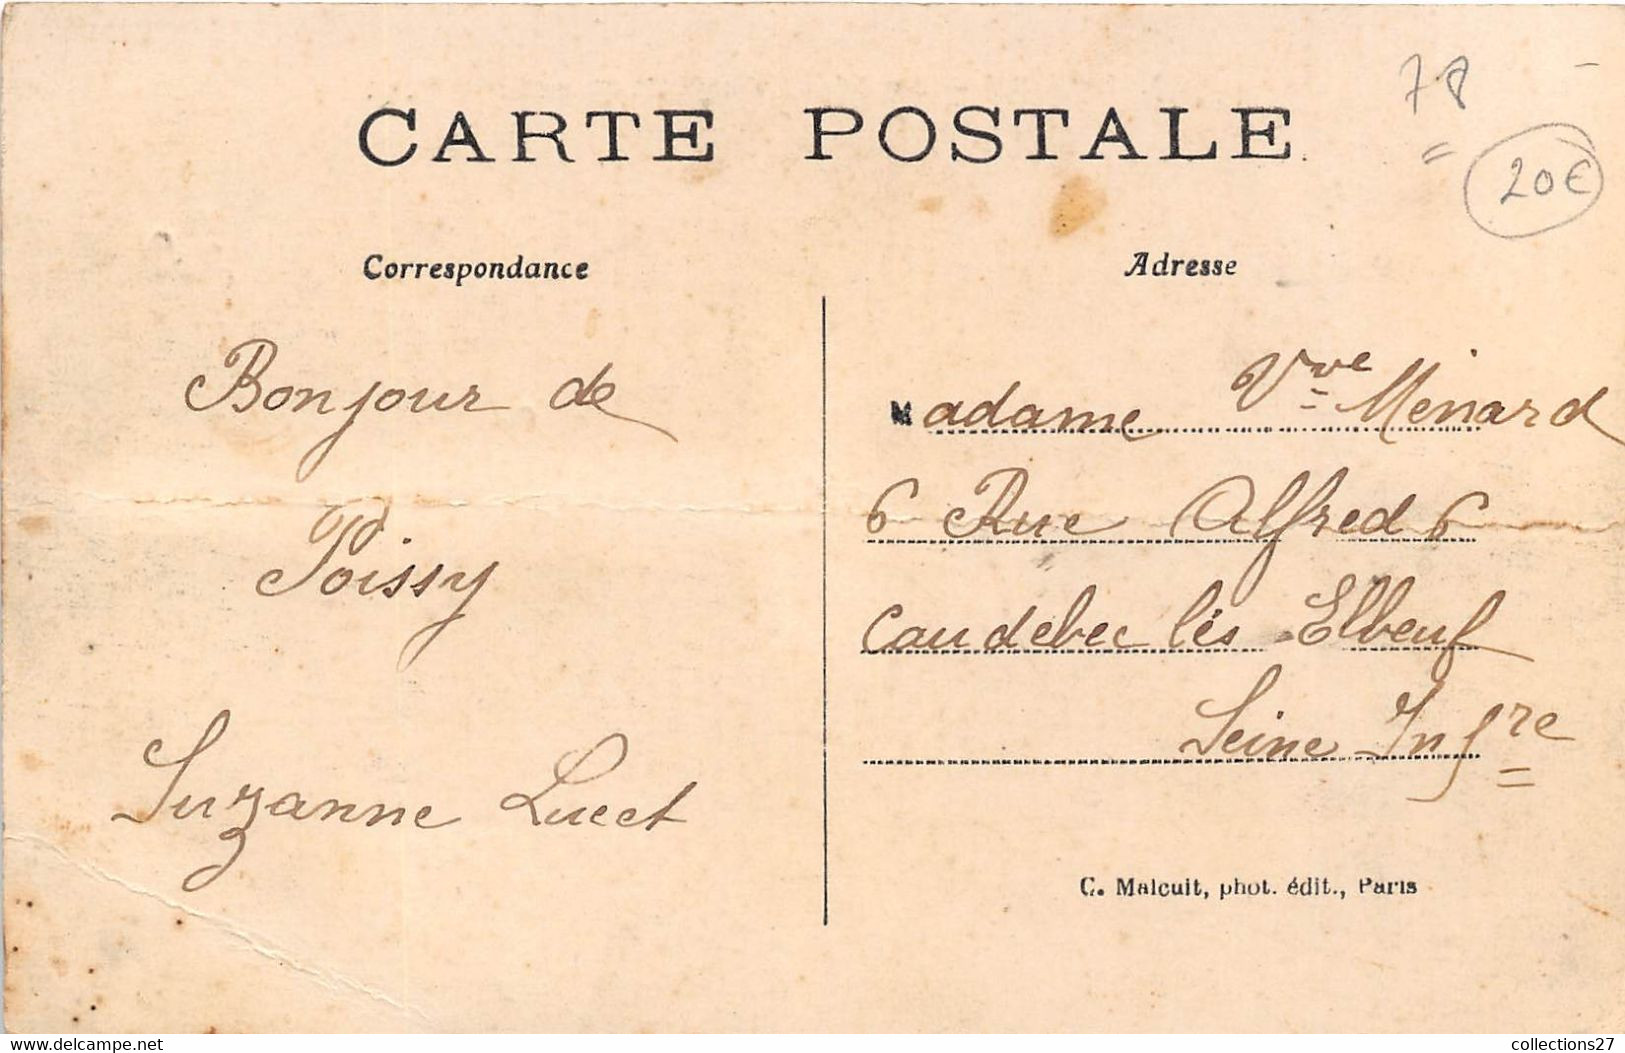 78
20€
CARTE POSTALE
Correspondance
Bonjour de
Poissy
Suzanne Lucet
Adresse
Madame Vve Menard
6 Rue Alfred 6
Caudebec lès Elbeuf
Seine Infre
C. Malcuit, phot. édit., Paris
www.delcampe.net
collections27